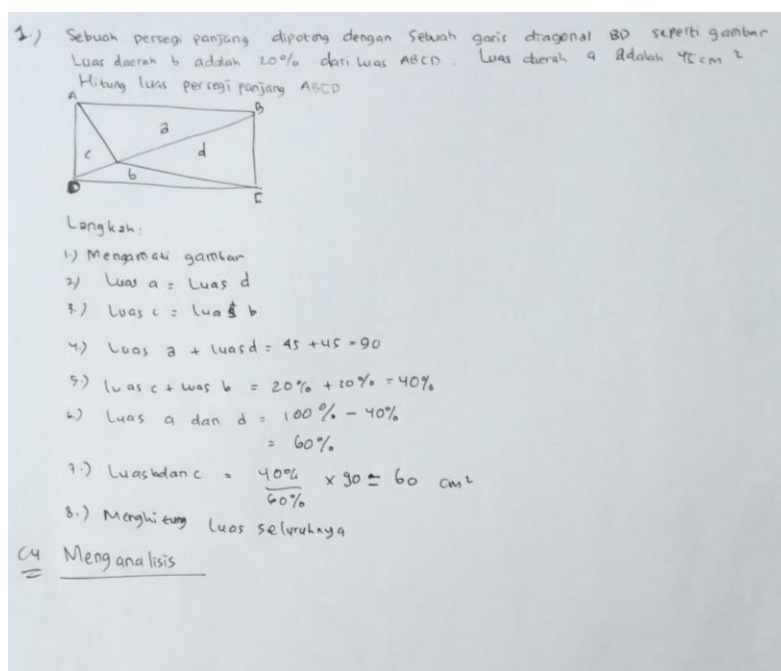 1.) Sebuah persegi panjang dipotong dengan sebuah garis diagonal BD seperti gambar
Luas daerah b adalah 20% dari luas ABCD. Luas daerah a adalah 45 cm 2
Hitung luas persegi panjang ABCD
A
B
a
c
d
b
D
C
Langkah:
1.) Mengamati gambar
2) Luas a = Luas d
3.) Luas c = luas b
4.) Luas a + luas d = 45 + 45 = 90
5.) luas c + luas b = 20% + 20% = 40%
6.) Luas a dan d = 100% - 40%
= 60%
7.) Luas b dan c = 40%/60% x 90 = 60 cm²
8.) Menghitung luas seluruhnya
C4 Menganalisis